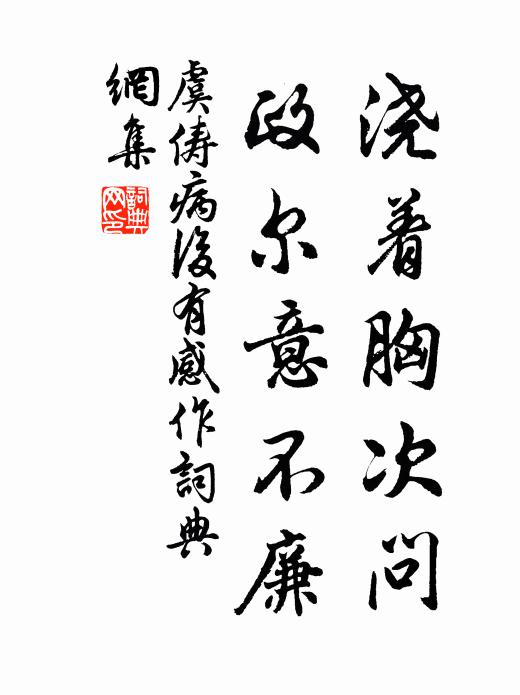 浇着胸次问
政尔意不廉
虞俦病後有感作詞典
網集
詞典網印